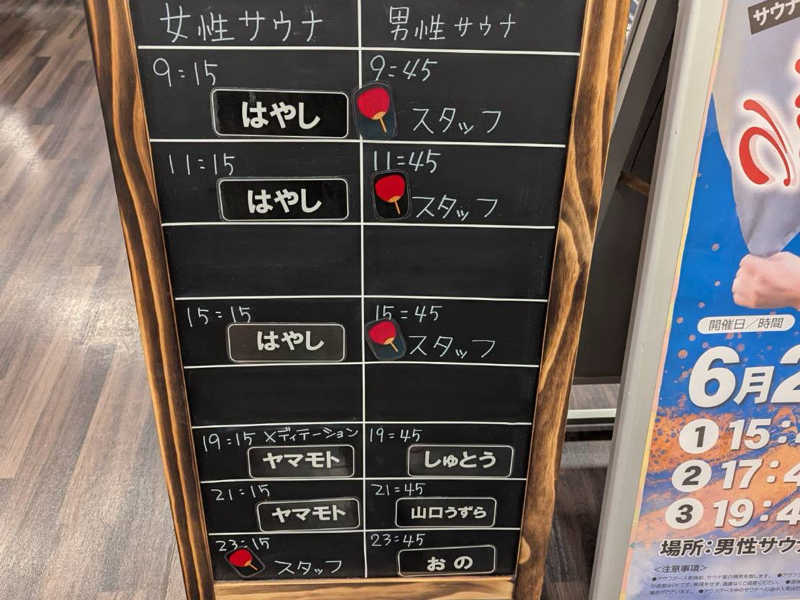 女性サウナ 男性サウナ
9:15 9:45
はやし スタッフ
11:15 11:45
はやし スタッフ
15:15 15:45
はやし スタッフ
19:15 メディテーション 19:45
ヤマモト しゅとう
21:15 21:45
ヤマモト 山口うずら
23:15 23:45
スタッフ おの
サウナ
開催日/時間
6月2
① 15:
② 17:4
③ 19:4
場所:男性サウ
<注意事項>